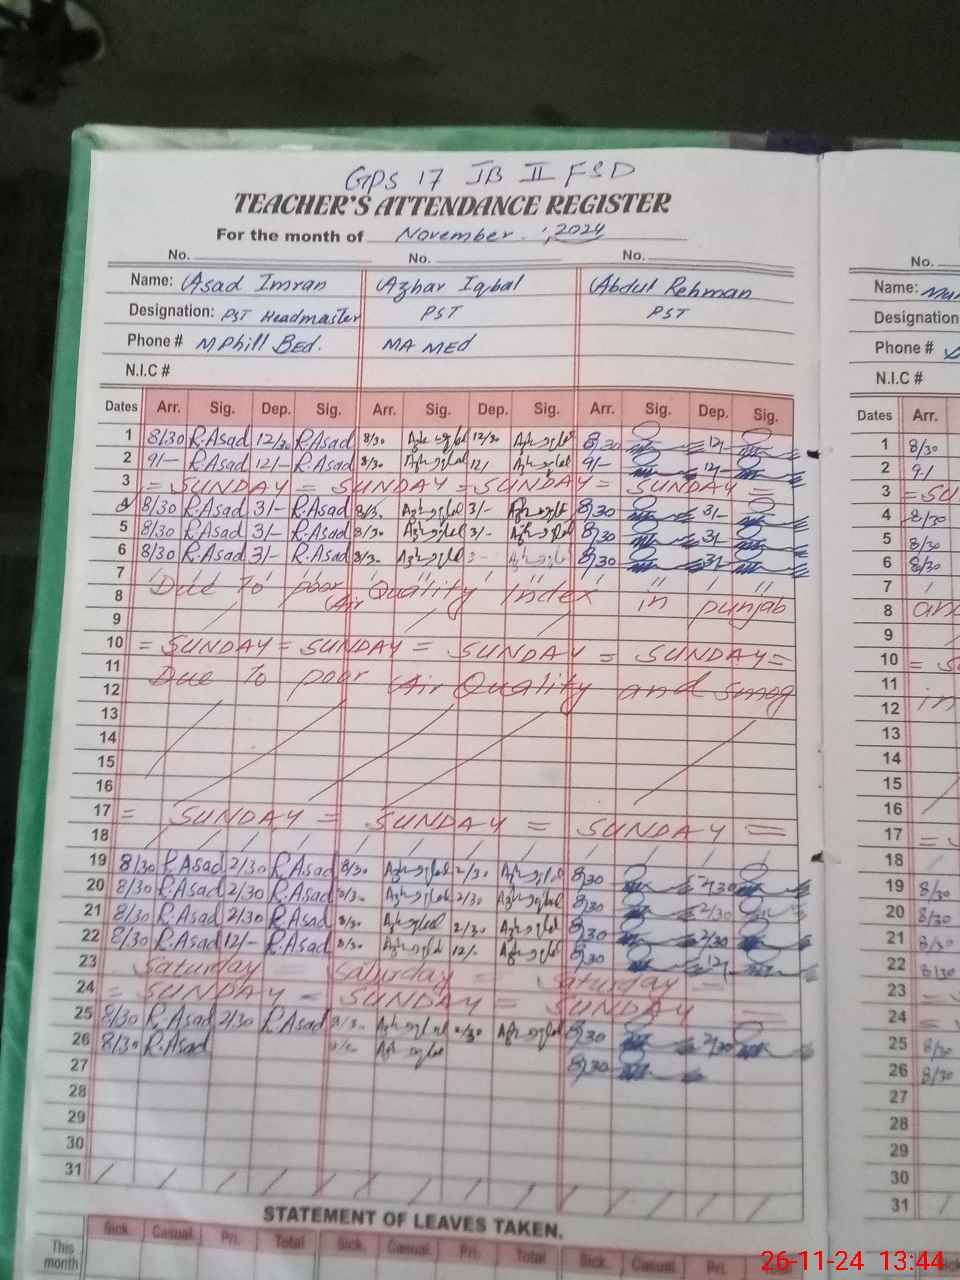 GPS 17 JB II FSD
TEACHER'S ATTENDANCE REGISTER
For the month of November, 2024
No. No. No. No.
Name: Asad Imran Azhar Iqbal Abdul Rehman Name:
Designation: PST Headmaster PST PST Designation
Phone # MPhill BEd. MA MEd Phone #
N.I.C # N.I.C #
Dates Arr. Sig. Dep. Sig. Arr. Sig. Dep. Sig. Arr. Sig. Dep. Sig. Dates Arr.
1 8/30 R.Asad 12/30 R.Asad 8/30 12/30 8/30 12/- 1 8/30
2 9/- R.Asad 12/- R.Asad 8/30 12/- 9/- 12/- 2 9/
3 = SUNDAY = SUNDAY = SUNDAY = SUNDAY = 3 = SU
4 8/30 R.Asad 3/- R.Asad 8/30 3/- 8/30 3/- 4 8/30
5 8/30 R.Asad 3/- R.Asad 8/30 3/- 8/30 3/- 5 8/30
6 8/30 R.Asad 3/- R.Asad 8/30 3- 8/30 3/- 6 8/30
7 7
8 Due To poor Air Quality Index in punjab 8 and
9 9
10 = SUNDAY = SUNDAY = SUNDAY = SUNDAY = 10 = S
11 Due To poor Air Quality and smog 11
12 12 in
13 13
14 14
15 15
16 16
17 = SUNDAY = SUNDAY = SUNDAY = 17 =
18 18
19 8/30 R.Asad 2/30 R.Asad 8/30 2/30 8/30 2/30 19 8/30
20 8/30 R.Asad 2/30 R.Asad 8/30 2/30 8/30 2/30 20 8/30
21 8/30 R.Asad 2/30 R.Asad 8/30 2/30 8/30 2/30 21 8/30
22 8/30 R.Asad 12/- R.Asad 8/30 12/- 8/30 12/- 22 8/30
23 Saturday = Saturday = Saturday = 23
24 = SUNDAY = SUNDAY = SUNDAY = 24
25 8/30 R.Asad 2/30 R.Asad 8/30 2/30 8/30 2/30 25 8/30
26 8/30 R.Asad 8/30 8/30 26 8/30
27 27
28 28
29 29
30 30
31 31
STATEMENT OF LEAVES TAKEN.
Sick. Casual. Pri. Total Sick. Casual. Pri. Total Sick. Casual. Pri. Total
This month
26-11-24 13:44